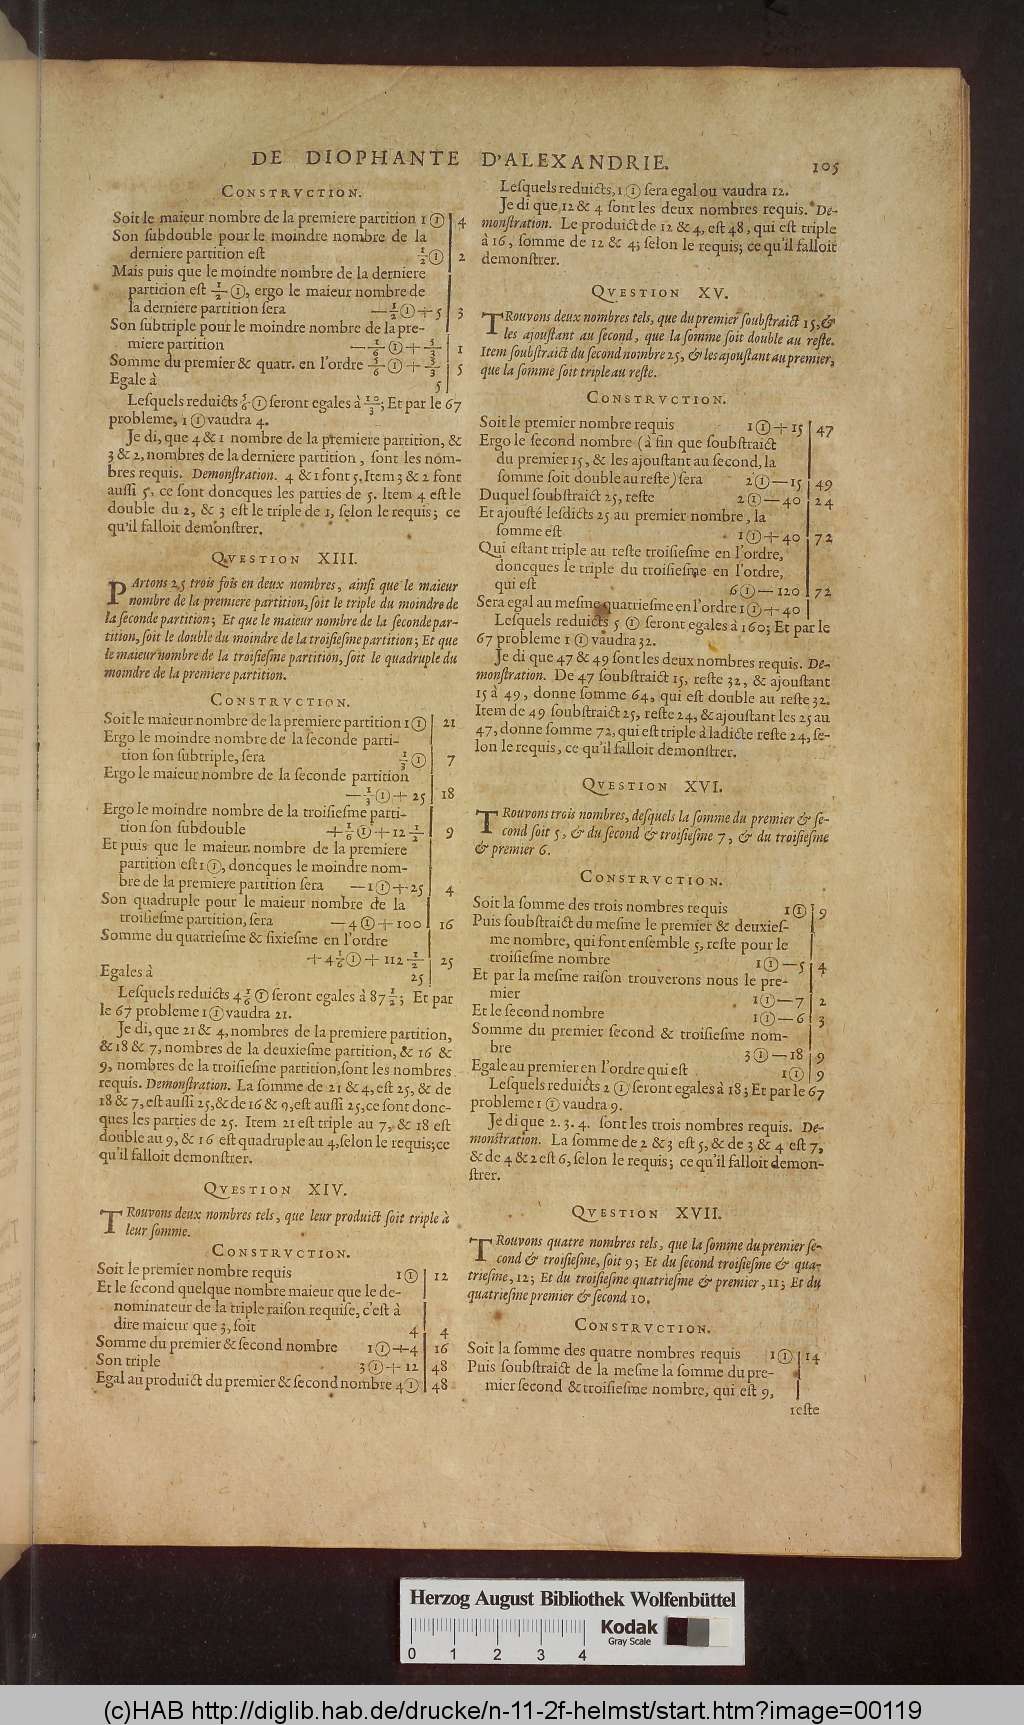 DE DIOPHANTE D'ALEXANDRIE. 105
CONSTRVCTION.
Soit le maieur nombre de la premiere partition 1① 4
Son ſubdouble pour le moindre nombre de la
derniere partition eſt ½① 2
Mais puis que le moindre nombre de la derniere
partition eſt ½①, ergo le maieur nombre de
la derniere partition ſera —½①+5 3
Son ſubtriple pour le moindre nombre de la pre-
miere partition —⅙①+5/3 1
Somme du premier & quatr. en l'ordre 5/6①+5/3 5
Egale à 5
Leſquels reduicts 5/6①ſeront egales à 10/3; Et par le 67
probleme, 1①vaudra 4.
Je di, que 4 & 1 nombre de la premiere partition, &
3 & 2, nombres de la derniere partition, ſont les nom-
bres requis. Demonſtration. 4 & 1 font 5, Item 3 & 2 font
auſſi 5, ce ſont doncques les parties de 5. Item 4 eſt le
double du 2, & 3 eſt le triple de 1, ſelon le requis; ce
qu'il falloit demonſtrer.
QVESTION XIII.
PArtons 25 trois fois en deux nombres, ainſi que le maieur
nombre de la premiere partition, ſoit le triple du moindre de
la ſeconde partition; Et que le maieur nombre de la ſeconde par-
tition, ſoit le double du moindre de la troiſieſme partition; Et que
le maieur nombre de la troiſieſme partition, ſoit le quadruple du
moindre de la premiere partition.
CONSTRVCTION.
Soit le maieur nombre de la premiere partition 1① 21
Ergo le moindre nombre de la ſeconde parti-
tion ſon ſubtriple, ſera ⅓① 7
Ergo le maieur nombre de la ſeconde partition
—⅓①+25 18
Ergo le moindre nombre de la troiſieſme parti-
tion ſon ſubdouble +⅙①+12½ 9
Et puis que le maieur nombre de la premiere
partition eſt 1①, doncques le moindre nom-
bre de la premiere partition ſera —1①+25 4
Son quadruple pour le maieur nombre de la
troiſieſme partition, ſera —4①+100 16
Somme du quatrieſme & ſixieſme en l'ordre
+4⅙①+112½ 25
Egales à 25
Leſquels reduicts 4⅙①ſeront egales à 87½; Et par
le 67 probleme 1① vaudra 21.
Je di, que 21 & 4, nombres de la premiere partition,
& 18 & 7, nombres de la deuxieſme partition, & 16 &
9, nombres de la troiſieſme partition, ſont les nombres
requis. Demonſtration. La ſomme de 21 & 4, eſt 25, & de
18 & 7, eſt auſſi 25, & de 16 & 9, eſt auſſi 25, ce ſont donc-
ques les parties de 25. Item 21 eſt triple au 7, & 18 eſt
double au 9, & 16 eſt quadruple au 4, ſelon le requis; ce
qu'il falloit demonſtrer.
QVESTION XIV.
TRouvons deux nombres tels, que leur produict ſoit triple à
leur ſomme.
CONSTRVCTION.
Soit le premier nombre requis 1① 12
Et le ſecond quelque nombre maieur que le de-
nominateur de la triple raiſon requiſe, c'eſt à
dire maieur que 3, ſoit 4 4
Somme du premier & ſecond nombre 1①+4 16
Son triple 3①+12 48
Egal au produict du premier & ſecond nombre 4① 48
Leſquels reduicts, 1① ſera egal ou vaudra 12.
Je di que 12 & 4 ſont les deux nombres requis. De-
monſtration. Le produict de 12 & 4, eſt 48, qui eſt triple
à 16, ſomme de 12 & 4; ſelon le requis; ce qu'il falloit
demonſtrer.
QVESTION XV.
TRouvons deux nombres tels, que du premier ſoubſtraict 15, &
les ajouſtant au ſecond, que la ſomme ſoit double au reſte.
Item ſoubſtraict du ſecond nombre 25, & les ajouſtant au premier,
que la ſomme ſoit triple au reſte.
CONSTRVCTION.
Soit le premier nombre requis 1①+15 47
Ergo le ſecond nombre (à fin que ſoubſtraict
du premier 15, & les ajouſtant au ſecond, la
ſomme ſoit double au reſte) ſera 2①—15 49
Duquel ſoubſtraict 25, reſte 2①—40 24
Et ajouſté leſdicts 25 au premier nombre, la
ſomme eſt 1①+40 72
Qui eſtant triple au reſte troiſieſme en l'ordre,
doncques le triple du troiſieſme en l'ordre,
qui eſt 6①—120 72
Sera egal au meſme quatrieſme en l'ordre 1①+40
Leſquels reduicts 5 ① ſeront egales à 160; Et par le
67 probleme 1① vaudra 32.
Je di que 47 & 49 ſont les deux nombres requis. De-
monſtration. De 47 ſoubſtraict 15, reſte 32, & ajouſtant
15 à 49, donne ſomme 64, qui eſt double au reſte 32.
Item de 49 ſoubſtraict 25, reſte 24, & ajouſtant les 25 au
47, donne ſomme 72, qui eſt triple à ladicte reſte 24, ſe-
lon le requis, ce qu'il falloit demonſtrer.
QVESTION XVI.
TRouvons trois nombres, deſquels la ſomme du premier & ſe-
cond ſoit 5, & du ſecond & troiſieſme 7, & du troiſieſme
& premier 6.
CONSTRVCTION.
Soit la ſomme des trois nombres requis 1① 9
Puis ſoubſtraict du meſme le premier & deuxieſ-
me nombre, qui font enſemble 5, reſte pour le
troiſieſme nombre 1①—5 4
Et par la meſme raiſon trouverons nous le pre-
mier 1①—7 2
Et le ſecond nombre 1①—6 3
Somme du premier ſecond & troiſieſme nom-
bre 3①—18 9
Egale au premier en l'ordre qui eſt 1① 9
Leſquels reduicts 2①ſeront egales à 18; Et par le 67
probleme 1① vaudra 9.
Je di que 2. 3. 4. ſont les trois nombres requis. De-
monſtration. La ſomme de 2 & 3 eſt 5, & de 3 & 4 eſt 7,
& de 4 & 2 eſt 6, ſelon le requis; ce qu'il falloit demon-
ſtrer.
QVESTION XVII.
TRouvons quatre nombres tels, que la ſomme du premier ſe-
cond & troiſieſme, ſoit 9; Et du ſecond troiſieſme & qua-
trieſme, 12; Et du troiſieſme quatrieſme & premier, 11; Et du
quatrieſme premier & ſecond 10.
CONSTRVCTION.
Soit la ſomme des quatre nombres requis 1① 14
Puis ſoubſtraict de la meſme la ſomme du pre-
mier ſecond & troiſieſme nombre, qui eſt 9,
reſte
Herzog August Bibliothek Wolfenbüttel
Kodak
Gray Scale
0 1 2 3 4
(c)HAB http://diglib.hab.de/drucke/n-11-2f-helmst/start.htm?image=00119